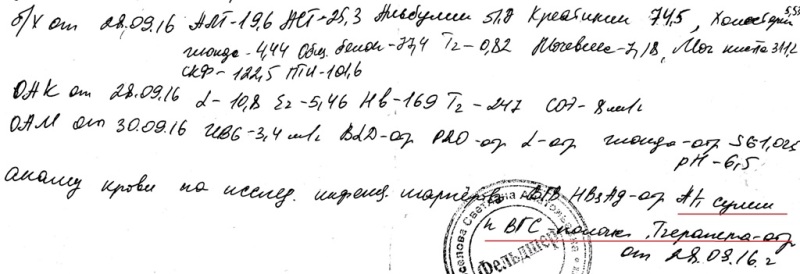 б/х от 28.09.16 АЛТ-19,6 АСТ-25,3 Альбумин 51,8 Креатинин 74,5, Холестерин 5,53
глюкоза-4,44 Общ. белок-77,4 Тг-0,82 Мочевина-7,18, Моч кислота 311,2
СКФ-122,5 ПТИ-101,6
ОАК от 28.09.16 L-10,8 Er-5,46 Hb-169 Tr-247 СОЭ-8мм/ч
ОАМ от 30.09.16 UBG-3,4 BLD-отр PRO-отр L-отр глюкоза-отр SG1,025
pH-6,5
анализ крови на исслед. инфекц. маркёров ВГВ HBsAg-отр Ат сумм
к ВГС -полож, -отр
от 28.09.16 г
Светлана Анатольевна
Фельдшер